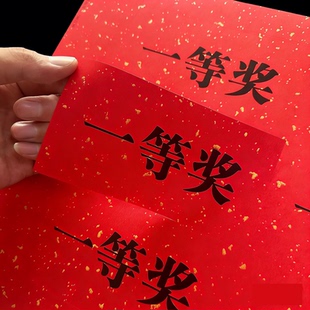 一等奖
一等奖
一等奖